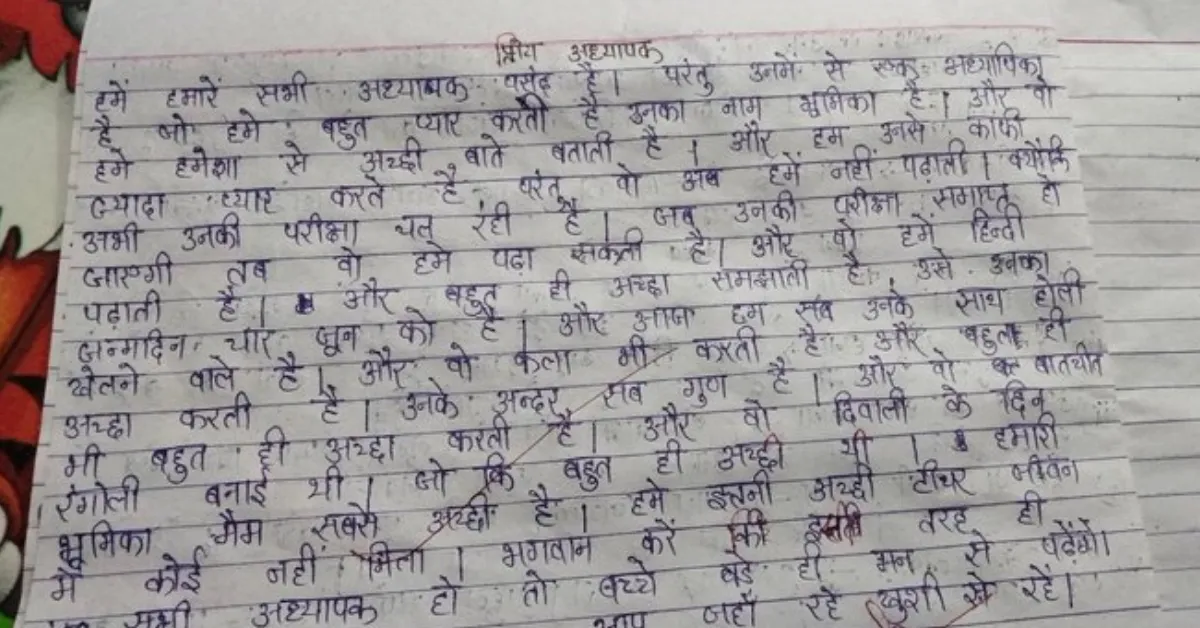 प्रिय अध्यापक
हमें हमारें सभी अध्यापक पसंद है। परंतु उनमें से एक अध्यापिका
है जो हमे बहुत प्यार करती है उनका नाम भूमिका है। और वो
हमे हमेशा से अच्छी बाते बताती है। और हम उनसे काफी
ज्यादा प्यार करते है परंतु वो अब हमें नहीं पढ़ाती। क्योंकि
अभी उनकी परीक्षा चल रही है। जब उनकी परीक्षा समाप्त हो
जाएगी तब वो हमे पढा सकती है। और वो हमें हिन्दी
पढ़ाती है। और बहुत ही अच्छा समझाती है उसे उनका
जन्मदिन चार जून को है। और आज हम सब उनके साथ होली
खेलने वाले है। और वो कला भी करती है और बहुत ही
अच्छा करती है। उनके अन्दर सब गुण है। और वो बातचीत
भी बहुत ही अच्छा करती है। और वो दिवाली के दिन
रंगोली बनाई थी। जो कि बहुत ही अच्छी थी। हमारी
भूमिका मैम सबसे अच्छी है। हमे इतनी अच्छी टीचर जीवन
में कोई नहीं मिला। भगवान करें की तरह ही
सभी अध्यापक हो तो बच्चे बडे ही मन से पढ़ेंगे।
आप जहाँ रहे खुशी से रहे।